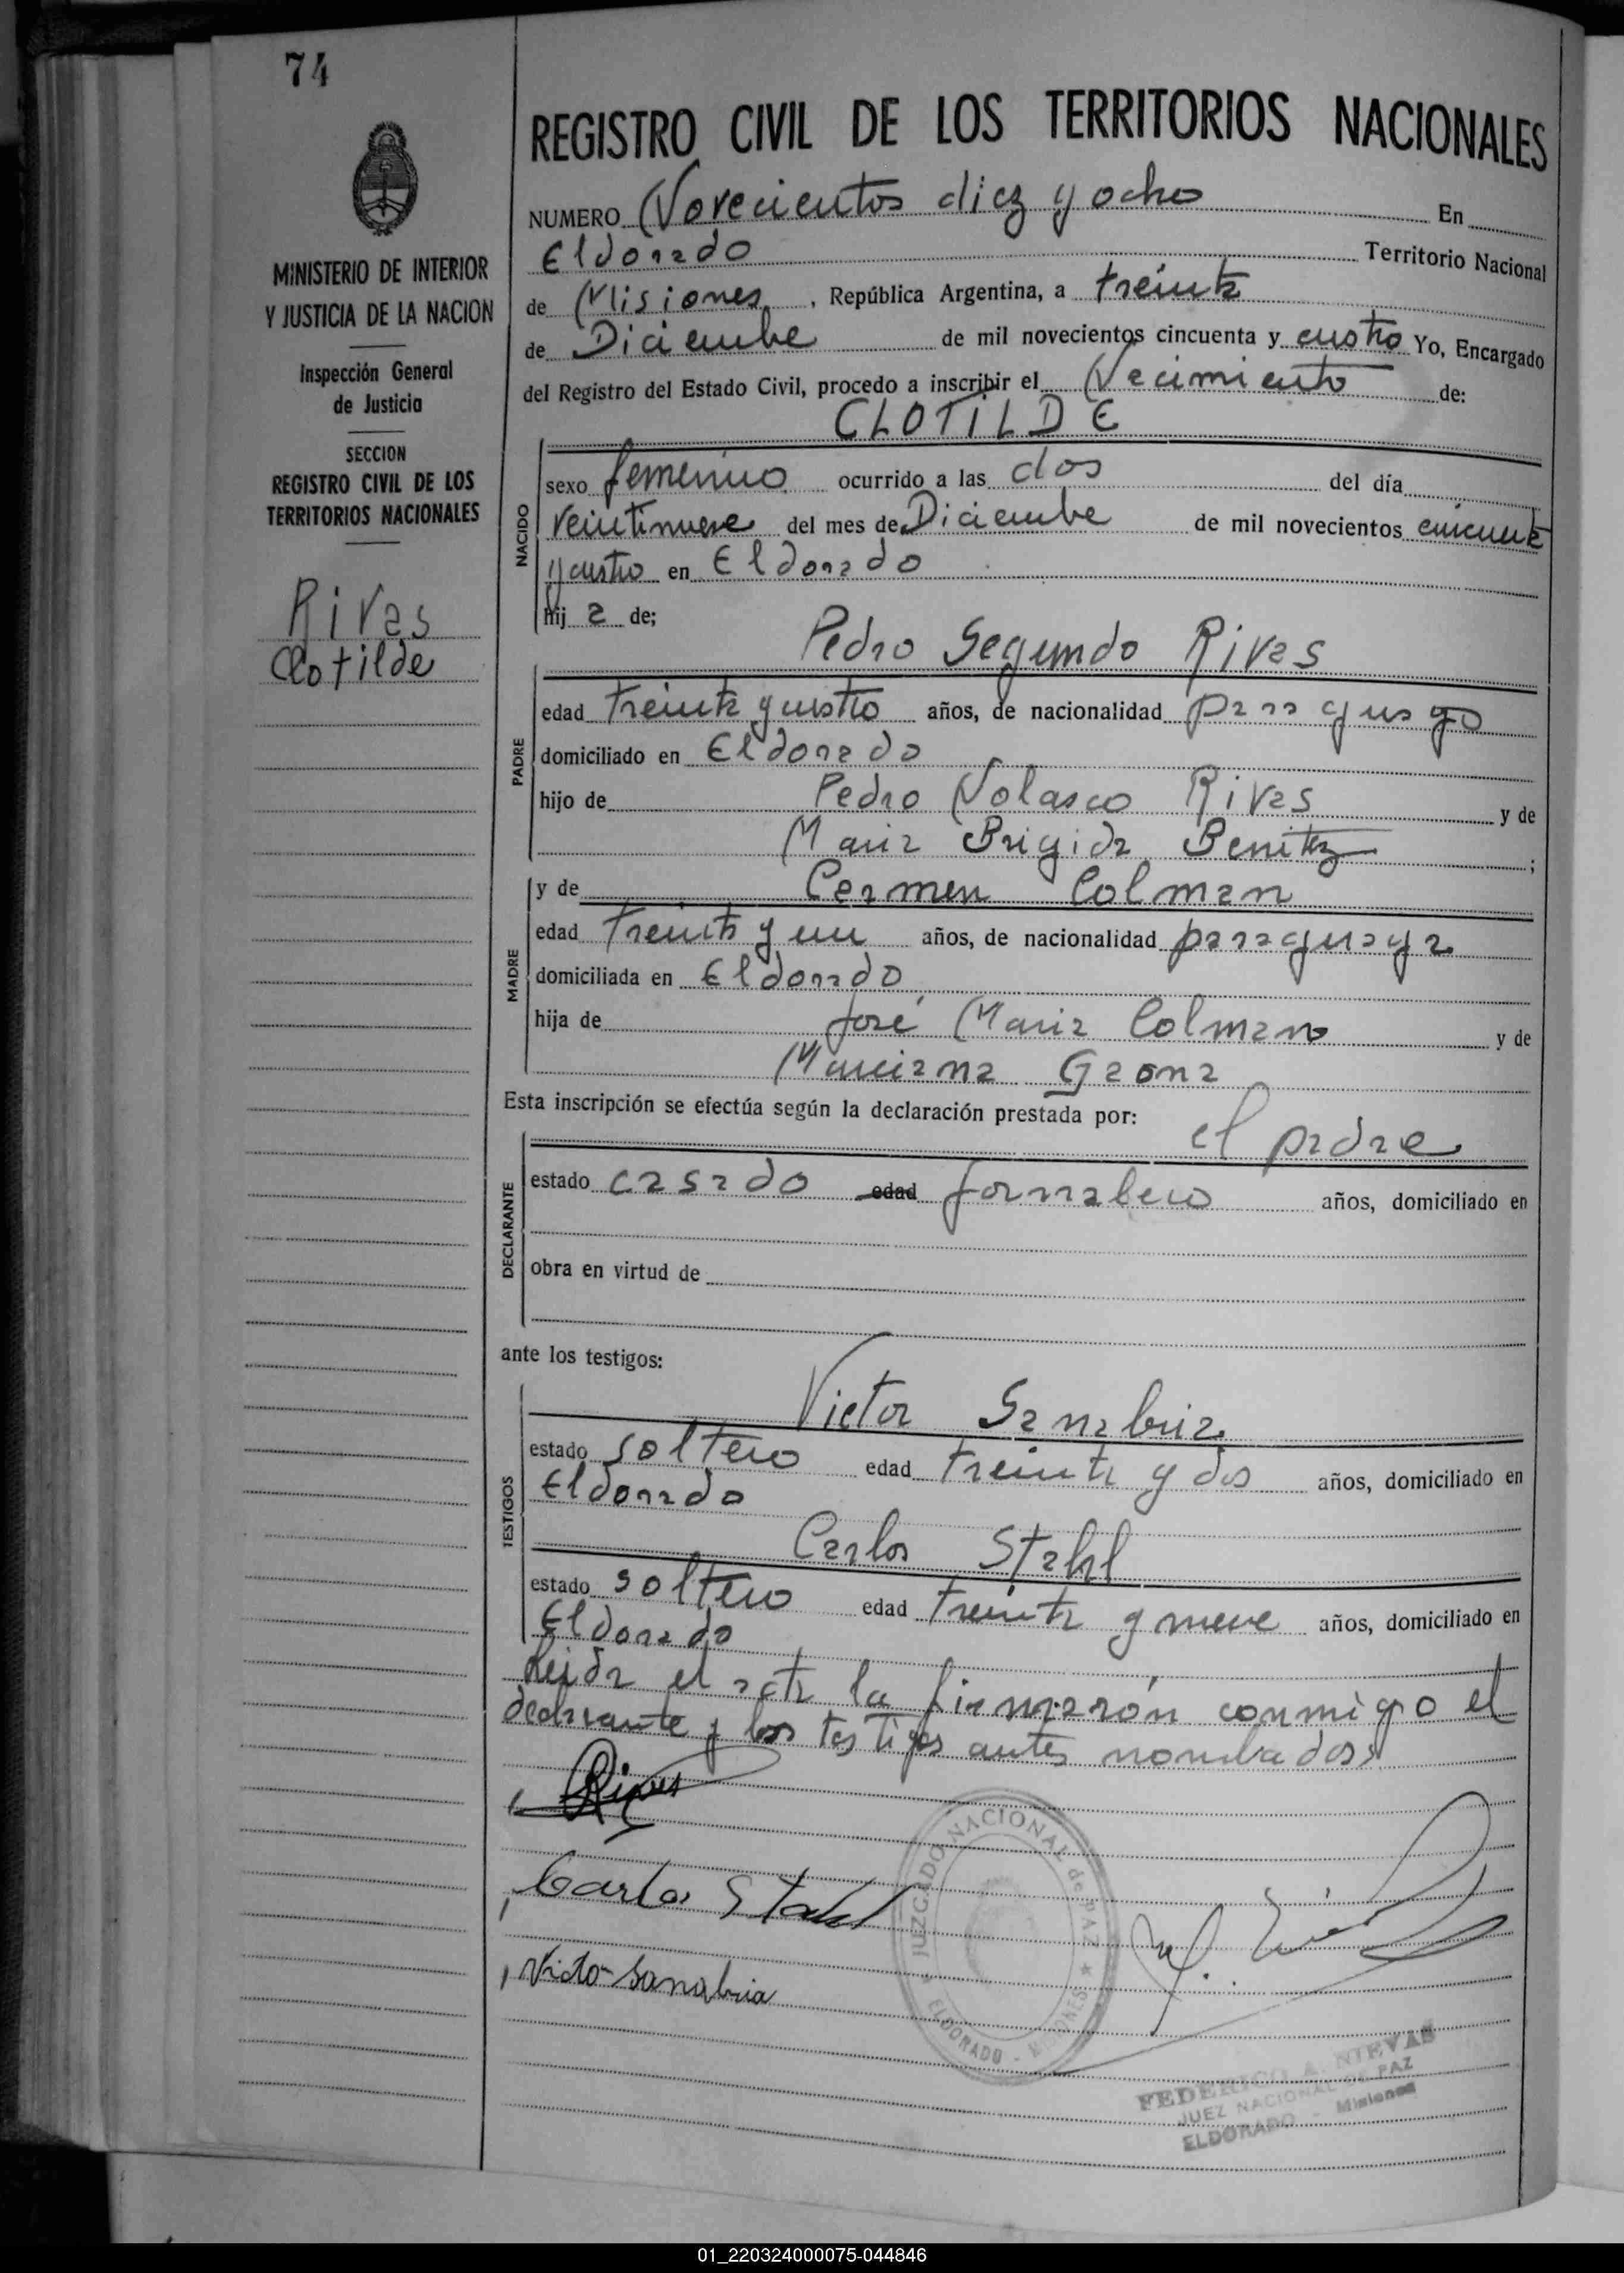 74
REGISTRO CIVIL DE LOS TERRITORIOS NACIONALES
MINISTERIO DE INTERIOR
Y JUSTICIA DE LA NACION
Inspección General
de Justicia
SECCION
REGISTRO CIVIL DE LOS
TERRITORIOS NACIONALES
Rivas
Clotilde
NUMERO Novecientos diez y ocho En
Eldorado Territorio Nacional
de Misiones, República Argentina, a treinta
de Diciembre de mil novecientos cincuenta y cuatro Yo, Encargado
del Registro del Estado Civil, procedo a inscribir el Nacimiento de:
CLOTILDE
NACIDO
sexo femenino ocurrido a las dos del día
veintinueve del mes de Diciembre de mil novecientos cincuenta
y cuatro en Eldorado
hij a de;
Pedro Segundo Rivas
PADRE
edad treinta y cuatro años, de nacionalidad paraguayo
domiciliado en Eldorado
hijo de Pedro Nolasco Rivas y de
Maria Brigida Benitez ;
y de Carmen Colman
MADRE
edad treinta y un años, de nacionalidad paraguaya
domiciliada en Eldorado,
hija de José Maria Colman y de
Marciana Gaona
Esta inscripción se efectúa según la declaración prestada por:
el padre
DECLARANTE
estado casado edad jornalero años, domiciliado en
obra en virtud de
ante los testigos:
Victor Sanabria
TESTIGOS
estado soltero edad treinta y dos años, domiciliado en
Eldorado
Carlos Stahl
estado soltero edad treinta y nueve años, domiciliado en
Eldorado
Leida el acta la firmarón conmigo el
declarante y los testigos antes nombados
Rivas
Carlos Stahl
Victor Sanabria
JUZGADO NACIONAL de PAZ
★ ELDORADO - MISIONES ★
FEDERICO A. NIEVAS
JUEZ NACIONAL DE PAZ
ELDORADO - Misiones
01_220324000075-044846